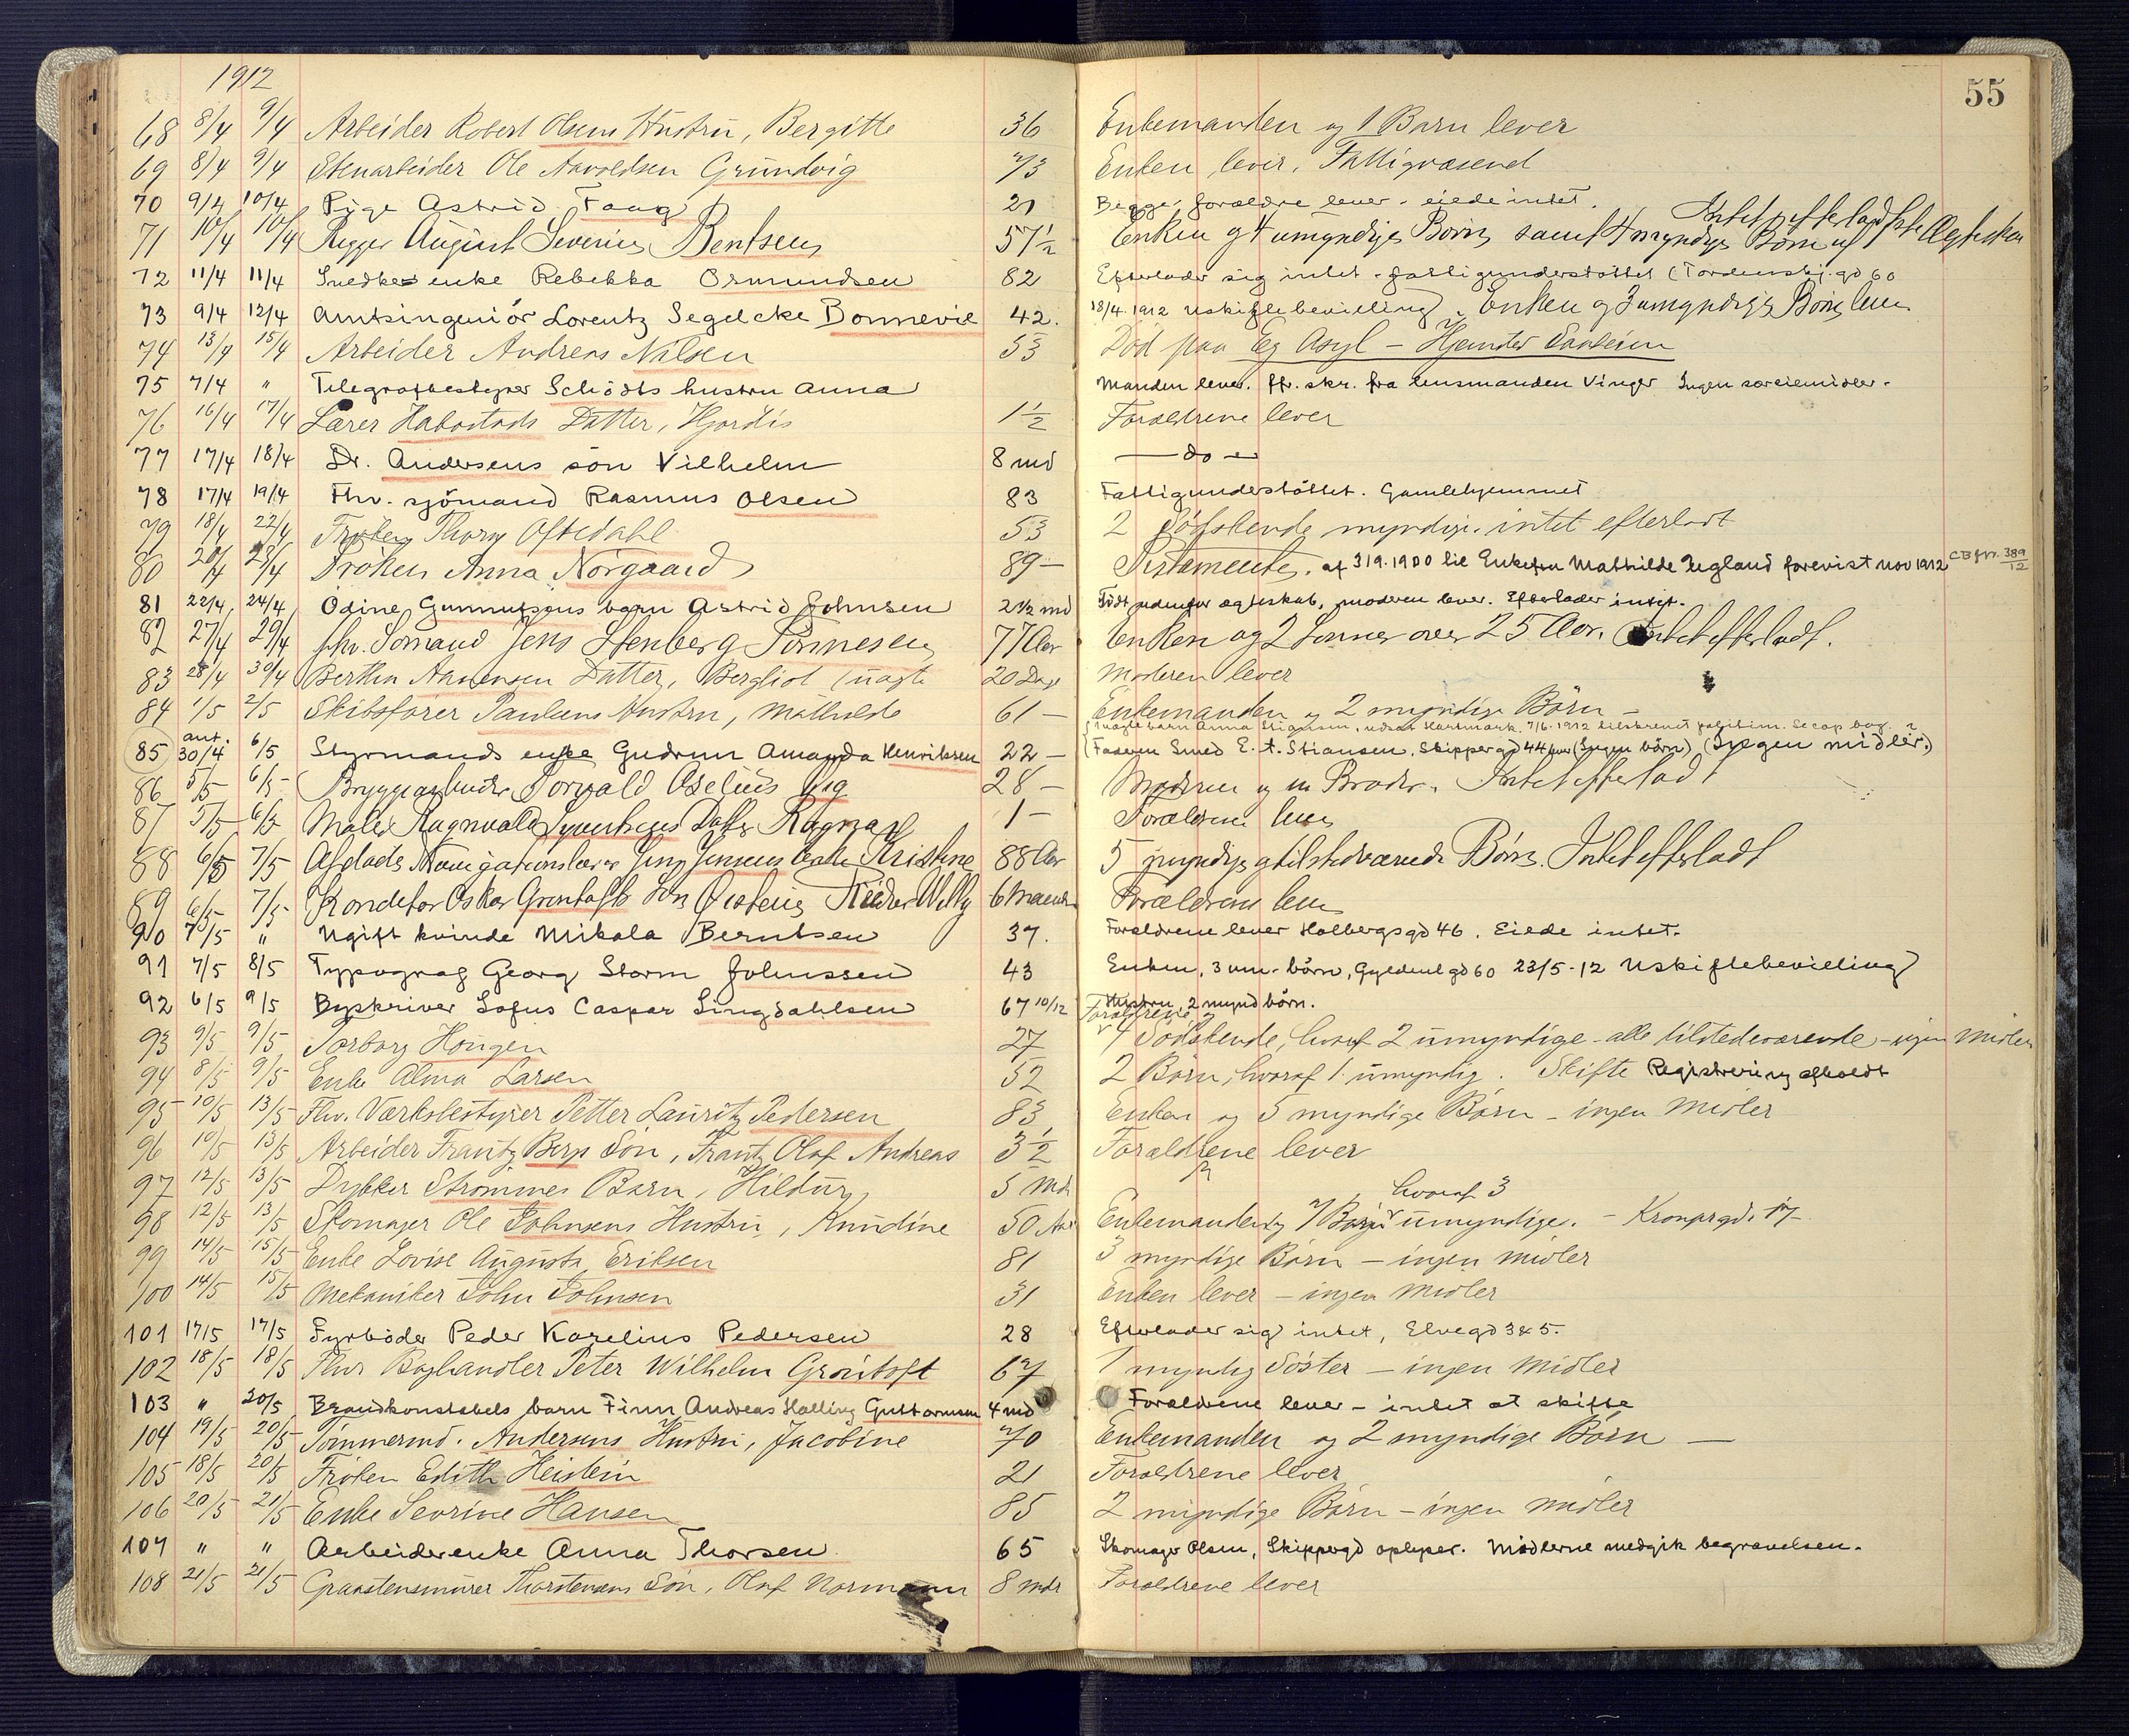 1912
55
68 8/4 9/4 Arbeider Robert Olsens Hustru, Bergitte 36 Enkemanden og 1 Barn lever
69 8/4 9/4 Stenarbeider Ole Aavoldsen Grundvig 73 Enken lever. Fattigvæsenet
70 9/4 10/4 Pige Astrid Faag 21 Begge forældre lever. eiede intet.
71 10/4 10/4 Rigger August Severin Bentsen 57½ Enken og 4 umyndige Børn samt 4 myndige Børn af 1ste Ægteskab Intet efterladt
72 11/4 11/4 Snedker enke Rebekka Osmundsen 82 Efterlader sig intet. fattigunderstøttet (Tordenskj.gd 60
73 9/4 12/4 Amtsingeniör Lorentz Segelcke Bonnevie 42. 18/4 1912 uskiftebevilling. Enken og 3 umyndige Børn lever
74 13/4 15/4 Arbeider Andreas Nilsen 53 Død paa Eg Asyl – Hjemsted
75 7/4 " Telegrafbestyrer Schiödts hustru Anna Manden lever. ffr. skr. fra lensmanden Vinger Ingen særeiemidler.
76 16/4 17/4 Lærer Habostads Datter, Hjørdis 1½ Forældrene lever
77 17/4 18/4 Dr. Andersens sön Vilhelm 8 md — do —
78 17/4 19/4 Fhv. sjömand Rasmus Olsen 83 Fattigunderstöttet. Gamlehjemmet
79 18/4 22/4 Frøken Thora Oftedahl 53 2 Södskende myndige. intet efterladt
80 20/4 23/4 Frøken Anna Nörgaard 89 — Testamente. af 3/9.1900 til Enkefru Mathilde Ugland forevist nov 1912 CB fvr. 389/12
81 22/4 24/4 Odine Gunnufsens barn Astrid Johnsen 2½ md Födt udenfor ægteskab, moderen lever. Efterlader intet.
82 27/4 29/4 fhv. Sömand Jens Stenberg Tönnesen 77 Aar Enken og 2 Sönner over 25 Aar. Intet efterladt.
83 28/4 30/4 Berthe Aanensen Datter, Bergliot (uægte 20 Dage Moderen lever
84 1/5 2/5 Skibsfører Paulsens Hustru, Mathilde 61 — Enkemanden og 2 myndige Børn —
85 ant. 30/4 6/5 Styrmands enke Gudrun Amanda Henriksen 22 — (Faderen Smed E. A. Stiansen. Skippergd 44 (Ingen börn) (Ingen midler.)
86 5/5 6/5 Bryggearbeider Torvald Oselius Vig 28 — Moderen og en Broder. Intet efterladt
87 5/5 6/5 Maler Ragnvald Syvertsens Datter Ragna 1 — Forældrene lever
88 6/5 7/5 Afdøde Navigationslærer Jens Jensens Enke Kristine 88 Aar 5 myndige og tilstedeværende Børn. Intet efterladt
89 6/5 7/5 Konditor Oskar Grøntofts Søn Øistein Willy 6 Maaneder Forældrene lever
90 7/5 " Ugift kvinde Mikala Berntsen 37. Forældrene lever Holbergsgd 46. Eiede intet.
91 7/5 8/5 Typograf Georg Storm Johnssen 43 Enken, 3 um. börn, Gyldenl gd 60 23/5-12 Uskiftebevilling
92 6/5 9/5 Byskriver Sofus Caspar Lingdahlsen 67 10/12 Hustru, 2 mynd börn.
93 9/5 9/5 Torborg Hougen 27 Forældrene og 4 Södskende, hvoraf 2 umyndige – alle tilstedeværende – ingen Midler
94 8/5 9/5 Enke Alma Larsen 52 2 Børn, hvoraf 1 umyndig. Skifte Registrering afholdt
95 10/5 13/5 Fhv. Værksbestyrer Petter Lauritz Pedersen 83 Enken og 5 myndige Børn – ingen Midler
96 10/5 13/5 Arbeider Frantz Bergs Søn, Frantz Olaf Andreas 3½ Forældrene lever
97 12/5 13/5 Dykker Strømmes Barn, Hildur 5 Mdr "
98 12/5 13/5 Skomager Ole Johnsens Hustru, Knudine 50 Aar Enkemanden og 7 Børn hvoraf 3 umyndige. – Kronprgd. 17 –
99 14/5 15/5 Enke Lovise Augusta Eriksen 81 3 myndige Børn – ingen midler
100 14/5 15/5 Mekaniker John Johnsen 31 Enken lever – ingen Midler
101 17/5 17/5 Fyrböder Peder Karelius Pedersen 28 Efterlader sig intet, Elvegd 34 5.
102 18/5 18/5 Fhv Boghandler Peter Wilhelm Grøntoft 67 1 myndig Søster – ingen Midler
103 " 20/5 Brandkonstabels barn Finn Andreas Halling Guttormsen 4 md Forældrene lever – intet at skifte
104 19/5 20/5 Tømmermd. Andersens Hustru, Jacobine 70 Enkemanden og 2 myndige Børn —
105 18/5 20/5 Frøken Edith Heistein 21 Forældrene lever
106 20/5 21/5 Enke Sevrine Hansen 85 2 myndige Børn – ingen Midler
107 " " Arbeiderenke Anna Thorsen 65 Skomager Olsen, Skippergd oplyser. Midlerne medgik begravelsen.
108 21/5 21/5 Graastensmurer Thorstensens Søn, Olaf Normann 8 mdr Forældrene lever